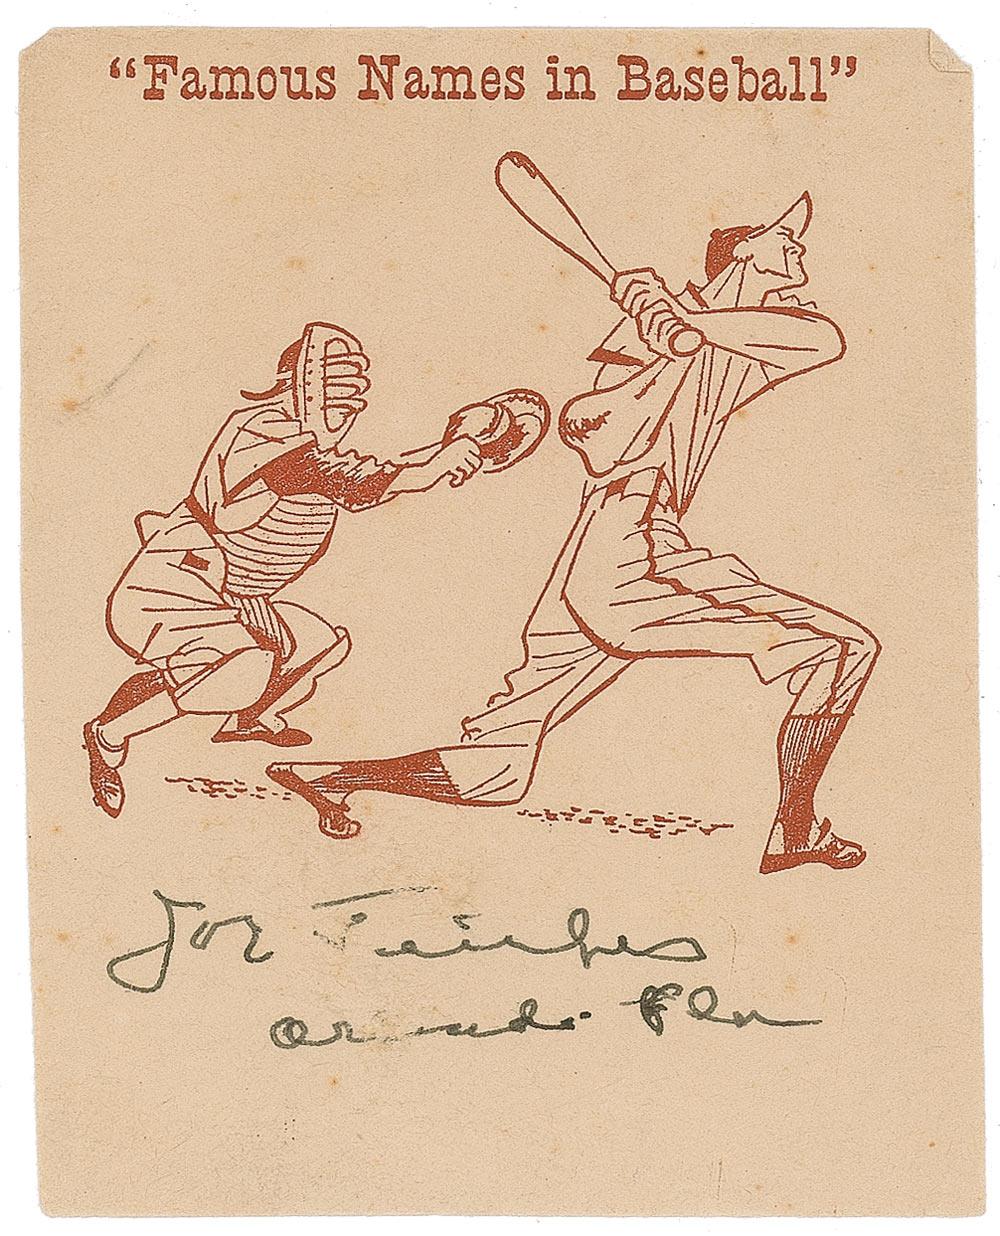 “Famous Names in Baseball”
Joe Tinker
Orlando Fla